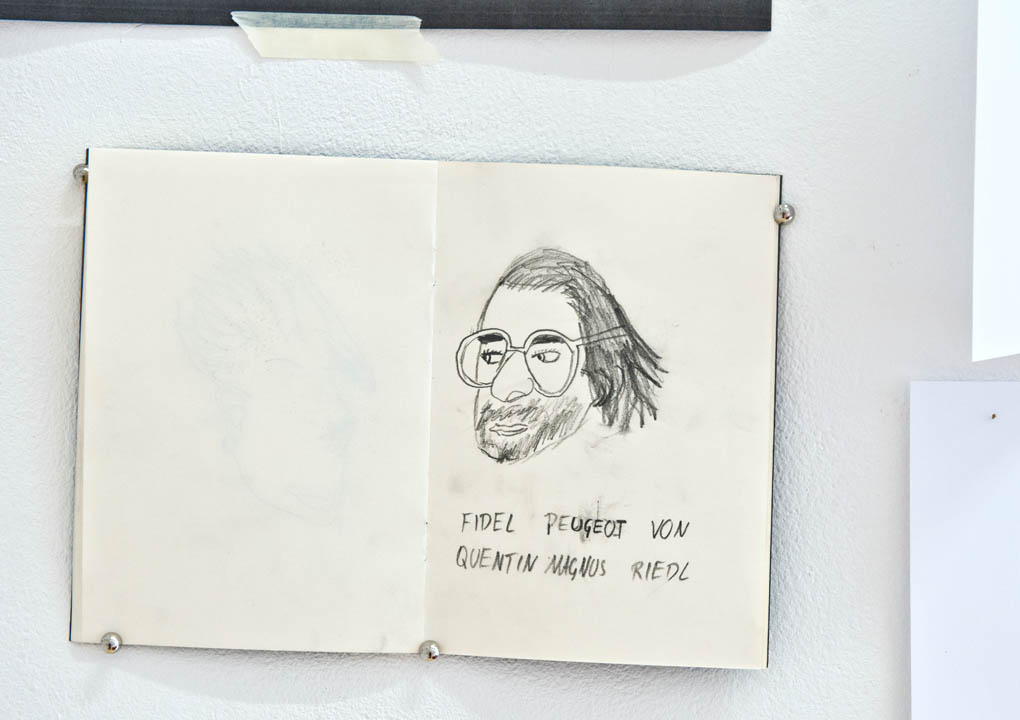 FIDEL PEUGEOT VON
QUENTIN MAGNUS RIEDL